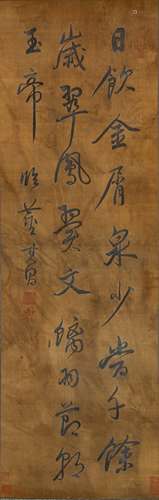 日飲金屑泉少當千餘
歲翠鳳翼文螭羽節朝
玉帝 臨董其昌